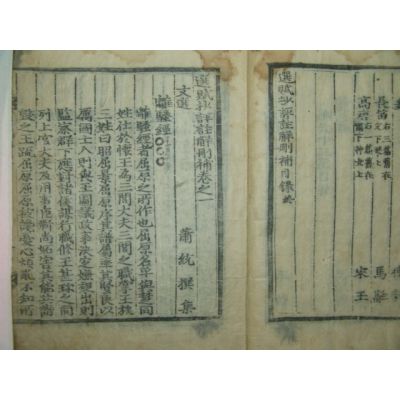 長笛
右三篇舊在
文下琴上
馬融
高唐
右一篇舊在
宋玉
選賦抄評註解刪補目錄終
選賦抄評註解刪補卷之一
文選
蕭統撰集
離騷經
離騷經者屈原之所作也屈原名平與楚同
姓仕於懷王為三閭大夫三閭之職掌王族
三姓曰昭屈景屈原序其譜屬率其賢良以
厲國士入則與王圖議政事決定嫌疑出則
監察群下應對諸侯謀行職修王甚珍之同
列上官大夫及用事臣靳尚妬害其能共譖
毀之王疏屈原屈原被讒憂心煩亂不知所